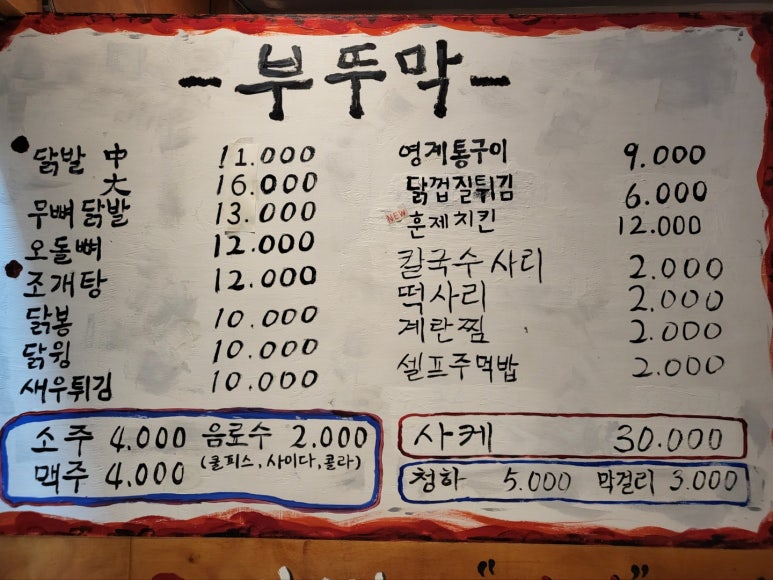 -부뚜막-
닭발 中 11.000
大 16.000
무뼈닭발 13.000
오돌뼈 12.000
조개탕 12.000
닭봉 10.000
닭윙 10.000
새우튀김 10.000
영계통구이 9.000
닭껍질튀김 6.000
NEW 훈제치킨 12.000
칼국수 사리 2.000
떡사리 2.000
계란찜 2.000
셀프주먹밥 2.000
소주 4.000 음료수 2.000
맥주 4.000 (쿨피스,사이다,콜라)
사케 30.000
청하 5.000 막걸리 3.000